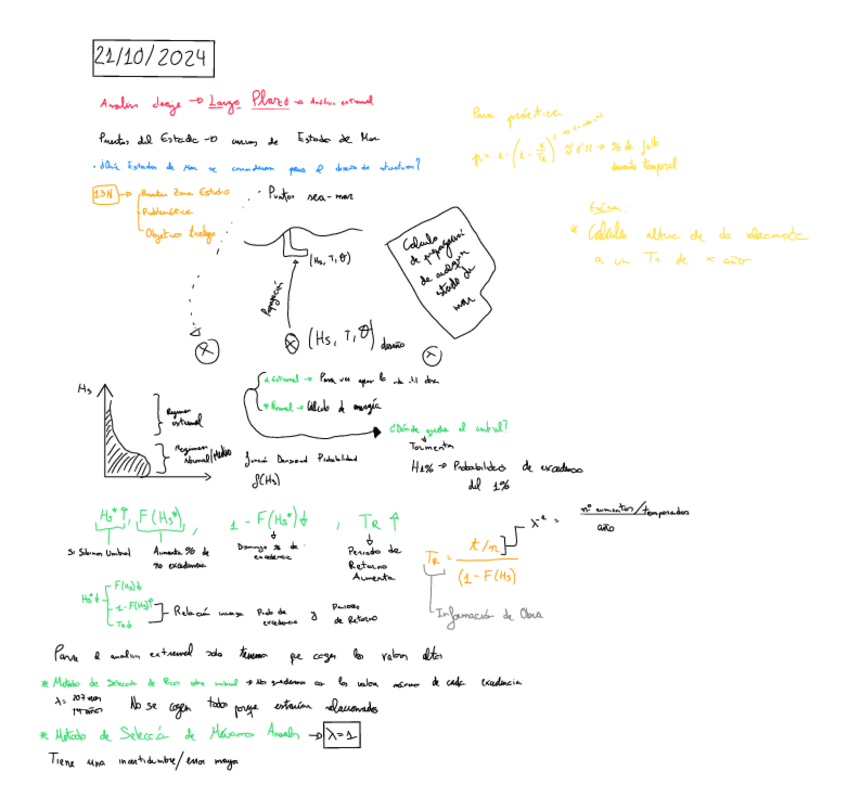 21/10/2024
Analisis oleaje → Largo Plazo → Análisis extremal
Puertos del Estado → Estado de Mar
· ¿Qué Estados de Mar se consideran para el diseño de estructuras?
13N → Puntos Zona Estudio
Problemática
Objetivos trabajo
· Puntos sea-mar
(Hs, T, θ)
Propagación
(Hs, T, θ) diseño
Calculo
de propagación
de cualquier
estado de
mar
Para práctica
% de fallo
durante temporal
* Calcular altura de ola relacionada
a un TR de x año
Hs
Regimen
extremal
Regimen
Normal/Medio
función Densidad Probabilidad
f(Hs)
* Extremal → Para ver que
* Normal → Cálculo de energía
¿Dónde queda el umbral?
Tormenta
H1% → Probabilidad de excedencia
del 1%
Hs*↑, F(Hs*), 1 - F(Hs*)↓, TR ↑
Si Subimos Umbral
Aumenta % de
no excedencia
Disminuye % de
excedencia
Periodo de
Retorno
Aumenta
TR = t/n / (1 - F(Hs))
λ⁻¹ = nº elementos/temporales
año
Información de Obra
Hs*↓
F(Hs)↓
1 - F(Hs)↑
TR↓
Relación inversa Prob de excedencia y Periodo de Retorno
Para el analisis extremal solo tenemos que coger los valores altos
* Metodo de Selección de Picos sobre umbral → Nos quedamos con los valores máximos de cada excedencia
λ=
14 años
No se cogen todos porque estarían relacionados
* Metodo de Selección de Máximos Anuales → λ=1
Tiene una incertidumbre/error mayor